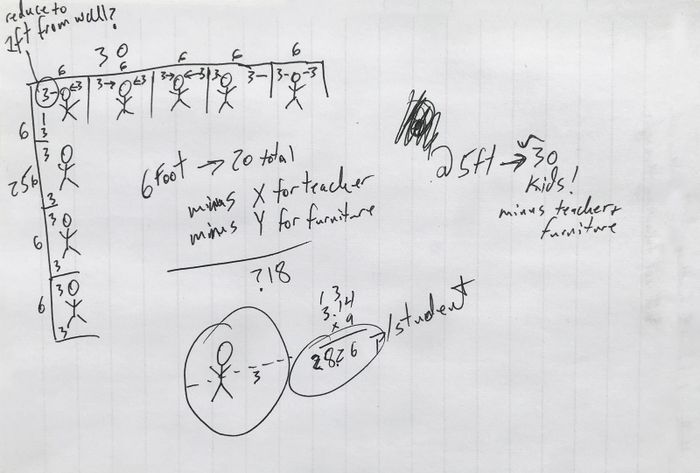 reduce to
1ft from wall?
30
6 6 6 6 6
3- ←3 3→ ←3 3→ ←3 3 3- 3- -3
3
6 3
256
3
3
6
3
6 3
3
6 Foot → 20 total
minus X for teacher
minus Y for furniture
?18
@ 5ft → 30
Kids!
minus teacher +
furniture
1 3
3.14
x 9
2826 /student
3